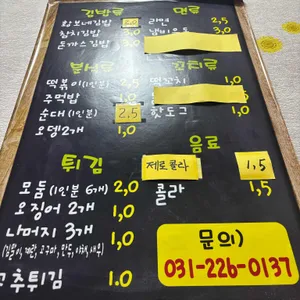 김밥류
황보네김밥 3,0
참치김밥 3,0
돈까스김밥 3,0
면류
라면 2,5
3,0
분식류
떡볶이(1인분)
주먹밥 1,0
순대(1인분) 2,5
오뎅2개 1,0
꼬치류
떡꼬치 1,0
핫도그 1,0
튀김
모둠(1인분 6개) 2,0
오징어 2개 1,0
나머지 3개 1,0
고추튀김 1.0
음료
제로콜라 1,5
콜라 1,5
문의)
031-226-0137